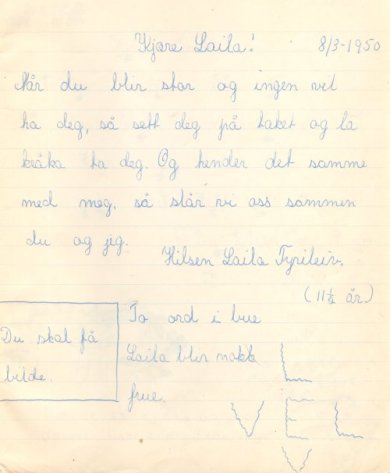 Kjære Laila! 8/3-1950
Når du blir stor og ingen vil
ha deg, så sett deg på taket og la
kråka ta deg. Og hender det samme
med meg, så står vi oss sammen
du og jeg.
Hilsen Laila
(11½ år)
Du skal få
bilde.
To ord i bue
Laila blir nokk
frue.
L
VEL
V